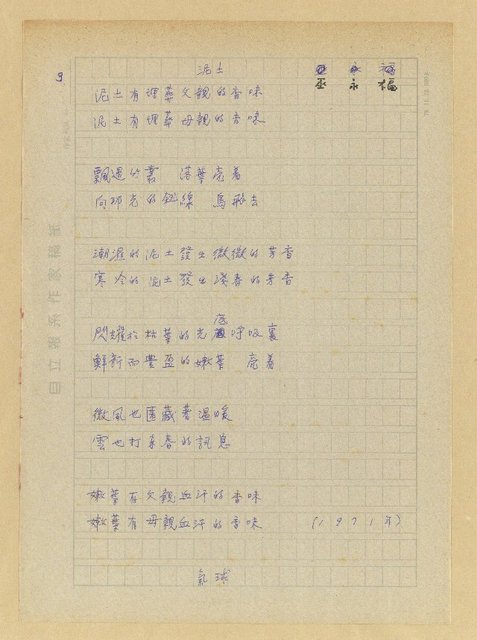 泥土
巫永福
巫永福
9.
泥土有埋葬父親的香味
泥土有埋葬母親的香味
飄過竹叢 落葉亮着
向陽光的斜線 鳥飛去
潮濕的泥土發出微微的芳香
寒冷的泥土發出淺春的芳香
閃耀於枯葉的光底呼吸裏
鮮新而豐盈的嫩葉 亮着
微風也匿藏著溫暖
雲也打來春的訊息
嫩葉有父親血汗的香味
嫩葉有母親血汗的香味 (1971年)
氣球
自立報系作家稿紙